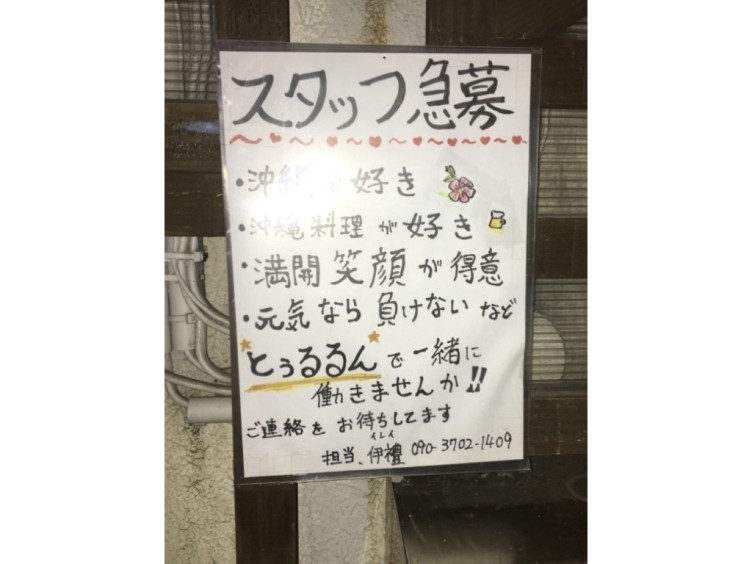 スタッフ急募
・沖縄が好き
・沖縄料理が好き
・満開笑顔が得意
・元気なら負けないなど
とぅるるんで一緒に
働きませんか!!
ご連絡をお待ちしてます
イレイ
担当、伊禮 090-3702-1409